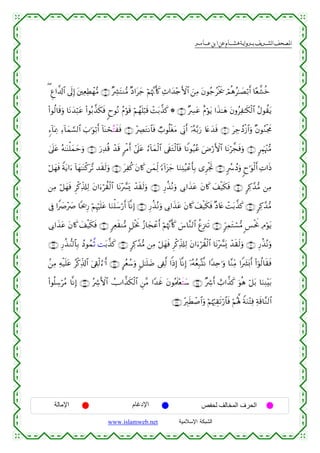 المصحف الشريف برواية هشام عن ابن عامر
خُشَّعًا أَبْصَٰرُهُمْ يَخْرُجُونَ مِنَ ٱلْأَجْدَاثِ كَأَنَّهُمْ جَرَادٌ مُّنتَشِرٌ مُّهْطِعِينَ إِلَى ٱلدَّاعِ
يَقُولُ ٱلْكَٰفِرُونَ هَٰذَا يَوْمٌ عَسِرٌ * كَذَّبَتْ قَبْلَهُمْ قَوْمُ نُوحٍ فَكَذَّبُوا۟ عَبْدَنَا وَقَالُوا۟
مَجْنُونٌ وَٱزْدُجِرَ فَدَعَا رَبَّهُۥ أَنِّى مَغْلُوبٌ فَٱنتَصِرْ فَفَتَّحْنَا أَبْوَٰبَ ٱلسَّمَآءِ بِمَآءٍ
مُّنْهَمِرٍ وَفَجَّرْنَا ٱلْأَرْضَ عُيُونًا فَٱلْتَقَى ٱلْمَآءُ عَلَىٰ أَمْرٍ قَدْ قُدِرَ وَحَمَلْنَٰهُ عَلَىٰ
ذَاتِ أَلْوَٰحٍ وَدُسُرٍ تَجْرِى بِأَعْيُنِنَا جَزَآءً لِّمَن كَانَ كُفِرَ وَلَقَد تَّرَكْنَٰهَا ءَايَةً فَهَلْ
مِن مُّدَّكِرٍ فَكَيْفَ كَانَ عَذَابِى وَنُذُرِ وَلَقَدْ يَسَّرْنَا ٱلْقُرْءَانَ لِلذِّكْرِ فَهَلْ مِن
مُّدَّكِرٍ كَذَّبَتْ عَادٌ فَكَيْفَ كَانَ عَذَابِى وَنُذُرِ إِنَّا أَرْسَلْنَا عَلَيْهِمْ رِيحًا صَرْصَرًا فِى
يَوْمِ نَحْسٍ مُّسْتَمِرٍّ تَنزِعُ ٱلنَّاسَ كَأَنَّهُمْ أَعْجَازُ نَخْلٍ مُّنقَعِرٍ فَكَيْفَ كَانَ عَذَابِى
وَنُذُرِ وَلَقَدْ يَسَّرْنَا ٱلْقُرْءَانَ لِلذِّكْرِ فَهَلْ مِن مُّدَّكِرٍ كَذَّبَت ثَّمُودُ بِٱلنُّذُرِ
فَقَالُوا۟ أَبَشَرًا مِّنَّا وَٰحِدًا نَّتَّبِعُهُۥ إِنَّا إِذًا لَّفِى ضَلَٰلٍ وَسُعُرٍ أَءُلْقِىَ ٱلذِّكْرُ عَلَيْهِ مِنۢ
بَيْنِنَا بَلْ هُوَ كَذَّابٌ أَشِرٌ سَتَعْلَمُونَ غَدًا مَّنِ ٱلْكَذَّابُ ٱلْأَشِرُ إِنَّا مُرْسِلُوا۟
ٱلنَّاقَةِ فِتْنَةً لَّهُمْ فَٱرْتَقِبْهُمْ وَٱصْطَبِرْ
الحرف المخالف لحفص الإدغام الإمالة
الشبكة الإسلامية www.islamweb.net